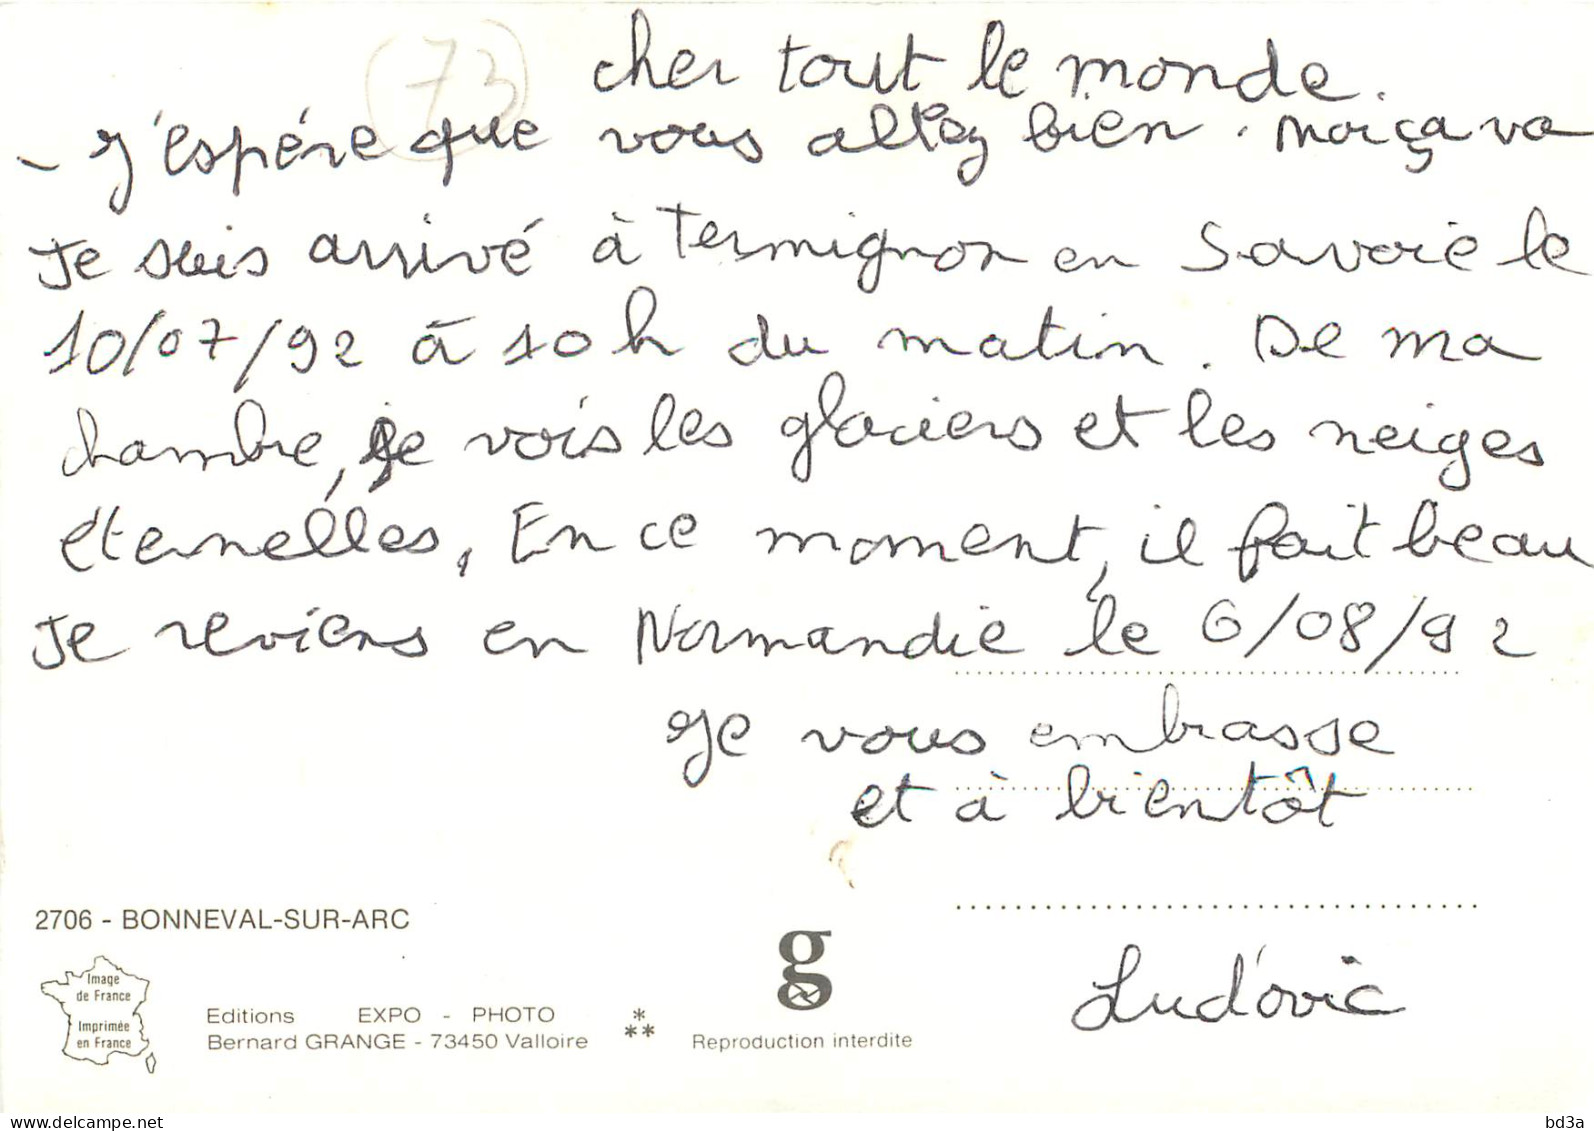 (73)
cher tout le monde.
- J'espére que vous allez bien. Moi ça va
Je suis arrivé à Termignon en Savoie le
10/07/92 à 10 h du matin. De ma
chambre, je vois les glaciers et les neiges
éternelles, En ce moment, il fait beau
Je reviens en Normandie le 6/08/92
Je vous embrasse
et à bientôt
Ludovic
2706 - BONNEVAL-SUR-ARC
Image
de France
Imprimée
en France
Editions EXPO - PHOTO
Bernard GRANGE - 73450 Valloire
***
g
Reproduction interdite
www.delcampe.net
bd3a